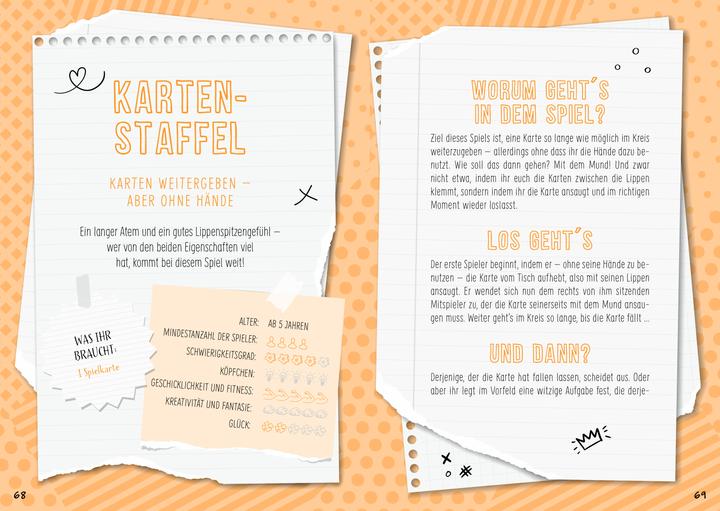 KARTEN-
STAFFEL
KARTEN WEITERGEBEN –
ABER OHNE HÄNDE
Ein langer Atem und ein gutes Lippenspitzengefühl –
wer von den beiden Eigenschaften viel
hat, kommt bei diesem Spiel weit!
WAS IHR
BRAUCHT:
1 Spielkarte
ALTER: AB 5 JAHREN
MINDESTANZAHL DER SPIELER:
SCHWIERIGKEITSGRAD:
KÖPFCHEN:
GESCHICKLICHKEIT UND FITNESS:
KREATIVITÄT UND FANTASIE:
GLÜCK:
68
WORUM GEHT´S
IN DEM SPIEL?
Ziel dieses Spiels ist, eine Karte so lange wie möglich im Kreis
weiterzugeben – allerdings ohne dass ihr die Hände dazu be-
nutzt. Wie soll das dann gehen? Mit dem Mund! Und zwar
nicht etwa, indem ihr euch die Karten zwischen die Lippen
klemmt, sondern indem ihr die Karte ansaugt und im richtigen
Moment wieder loslasst.
LOS GEHT´S
Der erste Spieler beginnt, indem er – ohne seine Hände zu be-
nutzen – die Karte vom Tisch aufhebt, also mit seinen Lippen
ansaugt. Er wendet sich nun dem rechts von ihm sitzenden
Mitspieler zu, der die Karte seinerseits mit dem Mund ansau-
gen muss. Weiter geht's im Kreis so lange, bis die Karte fällt ...
UND DANN?
Derjenige, der die Karte hat fallen lassen, scheidet aus. Oder
aber ihr legt im Vorfeld eine witzige Aufgabe fest, die derje-
69